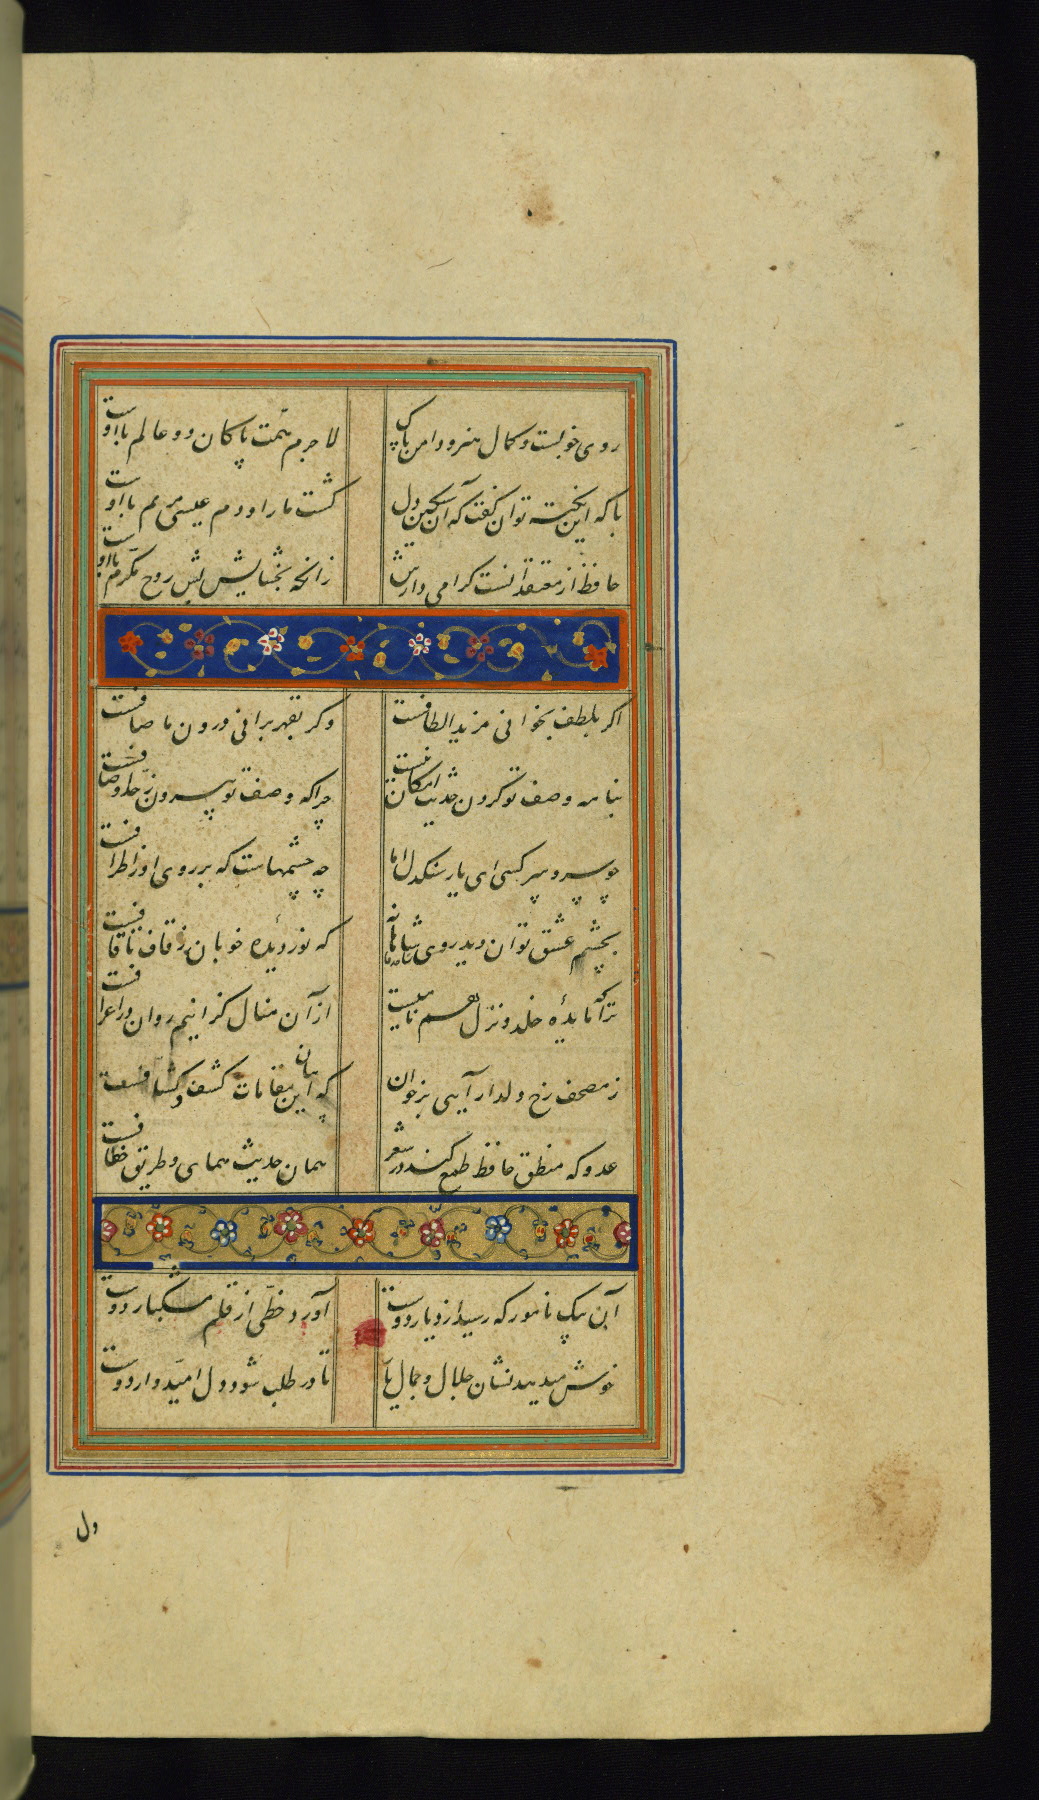 روی خوبست و کمال هنر و دامن پاک لاجرم همت پاکان دو عالم با اوست
با که این نکته توان گفت که آن سنگین دل کشت ما را و دم عیسی مریم با اوست
حافظ از معتقدانست گرامی دارش زانکه بخشایش بس روح مکرم با اوست
اگر بلطف بخوانی مزید الطافست وگر بقهر برانی درون ما صافست
وصف تو کردن حدیث امکان نیست چراکه وصف تو بیرون ز حد اوصافست
چو سرو سرکشی ای یار سنگدل با ما چه چشمهاست که بر روی او ز اطرافست
بچشم عشق توان دید روی شاهد ما که نور دیده خوبان ز قاف تا قافست
از آن منال
ز مصحف رخ دلدار آیتی برخوان که این بیان مقامات کشف و کشافست
عدو که منطق حافظ طمع کند در شعر همان حدیث همای و طریق خطافست
آن پیک نامور که رسید از دیار دوست آورد خطی از قلم مشکبار دوست
خوش میدهد نشان جلال و جمال یار تا در طلب شود دل امیدوار دوست
دل